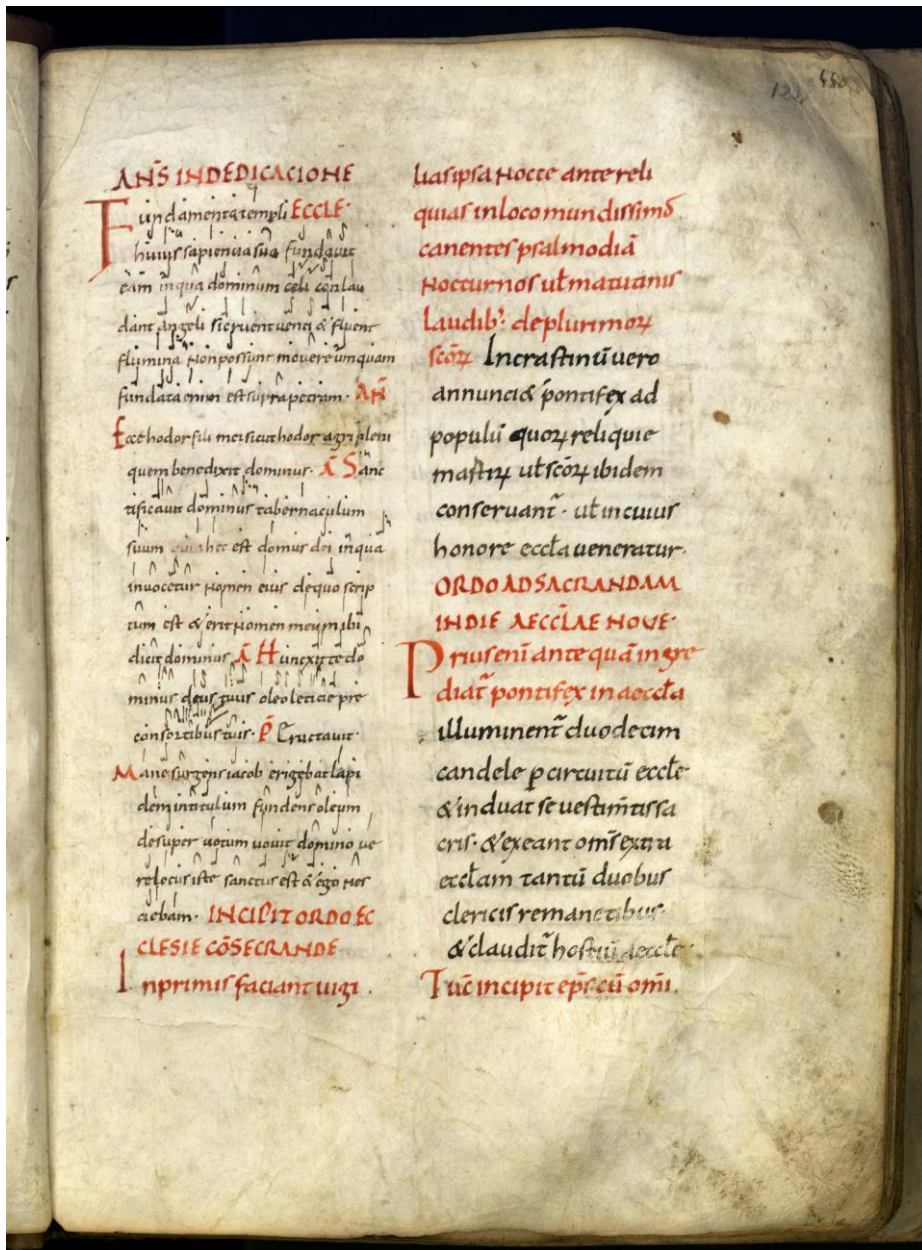 123
AN̄S IN DEDICACIONE
Fundamenta templi ECCLE·
huius sapientia sua fundauit
eam in qua dominum celi conlau
dant angeli si eruent uenti & fluent
flumina non possunt mouere umquam
fundata enim est supra petram· AN̄
Ecce hodor fili mei sicut hodor agri pleni
quem benedixit dominus· Ā Sanc
tificauit dominus tabernaculum
suum quia hec est domus dei in qua
inuocetur nomen eius de quo scrip
tum est & erit nomen meum ibi
dicit dominus Ā H unexit te do
minus deus tuus oleo leticie pre
consortibus tuis· P̄ Eructauit·
Mane surgens iacob erigebat lapi
dem in titulum fundens oleum
desuper uotum uouit domino ue
re locus iste sanctus est & ego nes
ciebam· INCIPIT ORDO EC
CLESIE CŌSECRANDE
Inprimis faciant uigi
lias ipsa nocte ante reli
quias in loco mundissimo
canentes psalmodiā
nocturnos ut̄ matutinis
laudib; de plurimoꝝ
scōꝝ In crastinū uero
annunci& pontifex ad
populū quoꝝ reliquie
mastiꝝ ut̄ scōꝝ ibidem
conseruant̄· ut̄ in cuius
honore eccła ueneratur·
ORDO AD SACRANDAM
IN DIE AECCLAE NOVE·
Prius enī ante quā ingre
diat̄ pontifex in aeccła
illuminent̄ duodecim
candele ꝑ circuitū eccłe
& induat se uestim̄tis sa
cris· & exeant om̄s extra
eccłam tantū duobus
clericis remanetibus·
& claudit̄ hostiū aeccłe·
Tūc incipit ep̄s cū om̄i·